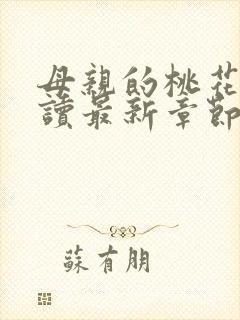 母親的桃花
讀最新章節
蘇有朋